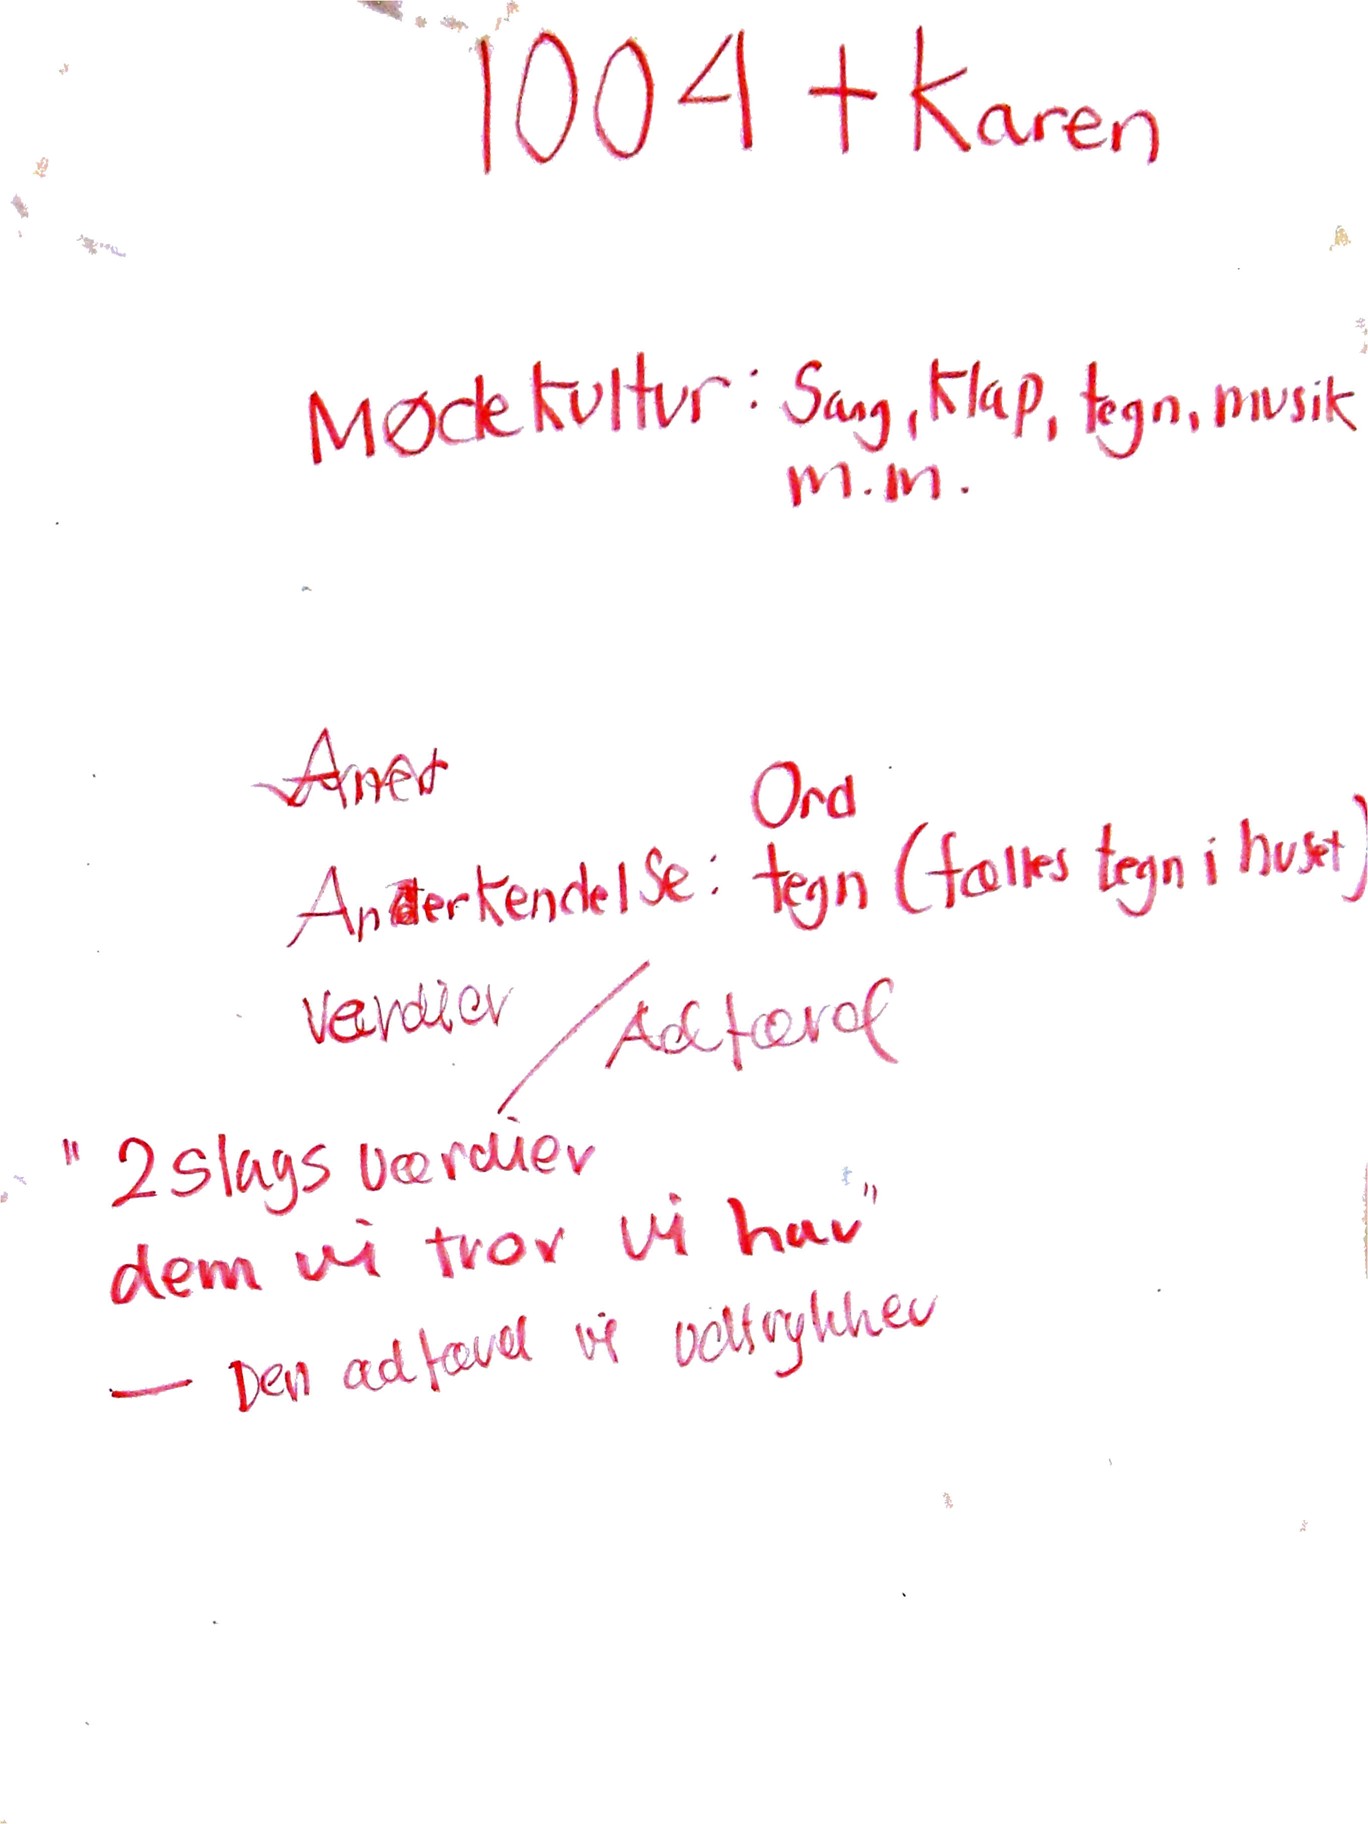 1004 + Karen
Mødekultur: Sang, klap, tegn, musik
m.m.
Aner
Ord
Anerkendelse: tegn (fælles tegn i huset)
Værdier / Adfærd
" 2 slags værdier
dem vi tror vi har"
— Den adfærd vi udtrykker